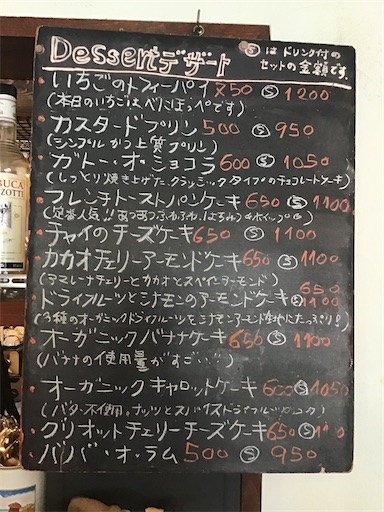 Dessertデザート
Ⓢはドリンク付の
セットの金額です。
いちごのトフィーパイ 750 Ⓢ 1200
(本日のいちごはべにほっぺです)
カスタードプリン 500 Ⓢ 950
(シンプルかつ上質プリン)
ガトー・オ・ショコラ 600 Ⓢ 1050
(しっとり焼き上げた、クラシックタイプのチョコレートケーキ)
フレンチトーストパンケーキ 650 Ⓢ 1100
(定番人気!!あつあつふわふわ、はちみつ&ホイップ
チャイのチーズケーキ 650 Ⓢ 1100
カカオチェリーアーモンドケーキ 650 Ⓢ 1100
(アマレーナチェリーとカカオとスペインアーモンド)
ドライフルーツとシナモンのアーモンドケーキ 650 Ⓢ 1100
(3種のオーガニックドライフルーツをシナモンアーモンド生地にたっぷり!)
オーガニックバナナケーキ 650 Ⓢ 1100
(バナナの使用量がすごい!!)
オーガニックキャロットケーキ 600 Ⓢ 1050
(バター不使用。ナッツとスパイスドライフルーツ
グリオットチェリーチーズケーキ 650 Ⓢ
ババ・オ・ラム 500 Ⓢ 950
BUCA